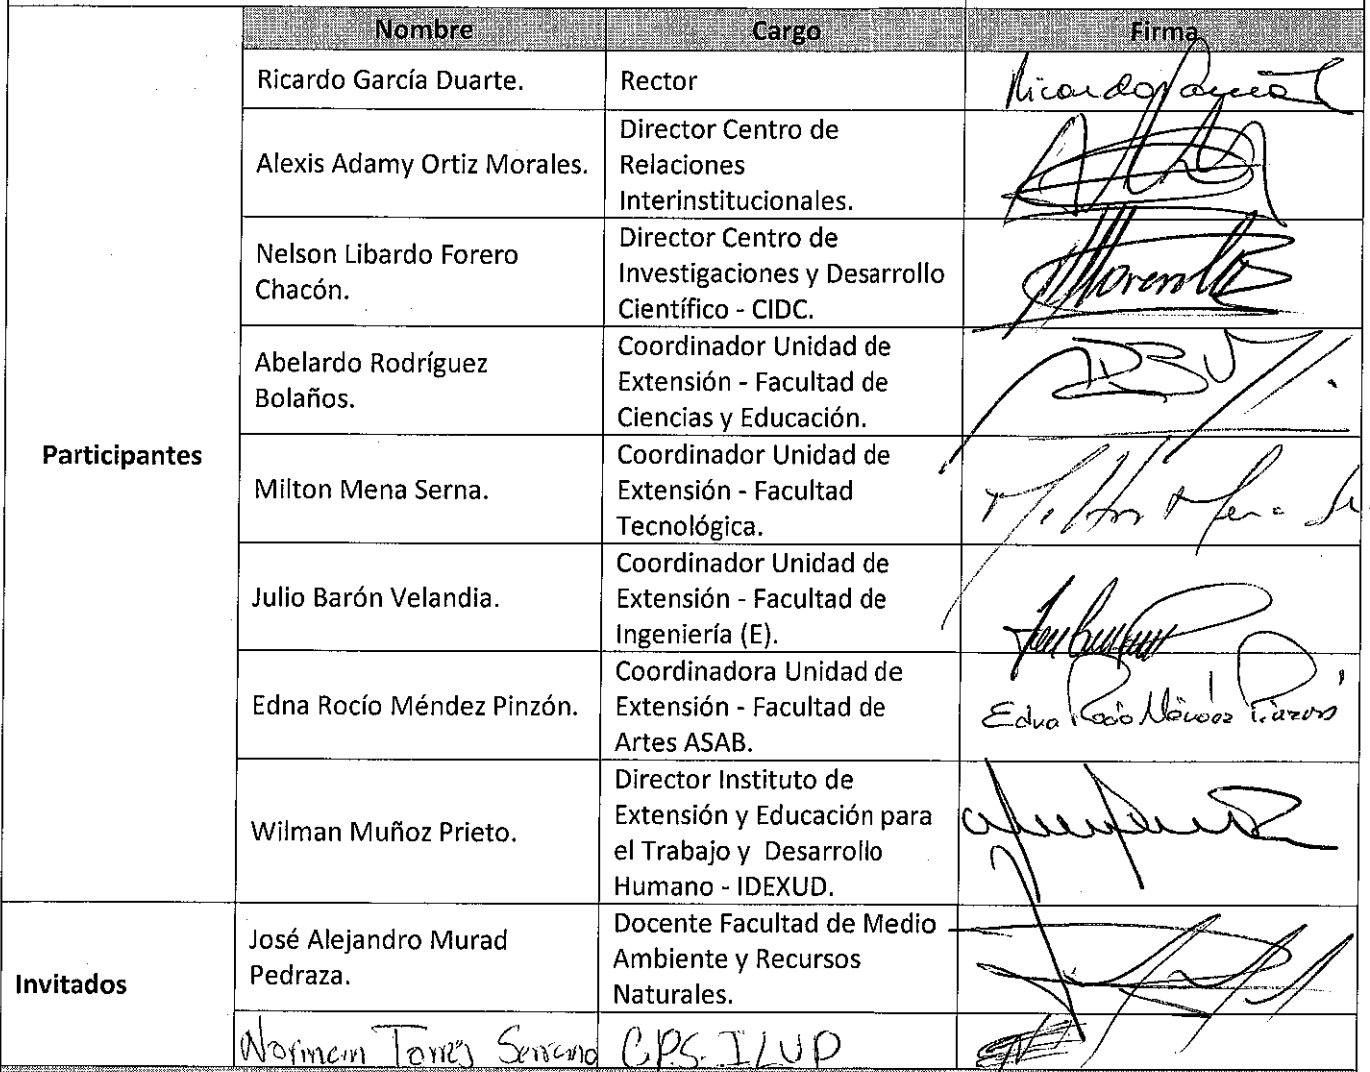 Nombre Cargo Firma
Participantes
Ricardo García Duarte. Rector Ricardo García
Alexis Adamy Ortiz Morales. Director Centro de
Relaciones
Interinstitucionales.
Nelson Libardo Forero
Chacón.
Director Centro de
Investigaciones y Desarrollo
Científico - CIDC.
Abelardo Rodríguez
Bolaños.
Coordinador Unidad de
Extensión - Facultad de
Ciencias y Educación.
Milton Mena Serna.
Coordinador Unidad de
Extensión - Facultad
Tecnológica.
Milton Mena
Julio Barón Velandia.
Coordinador Unidad de
Extensión - Facultad de
Ingeniería (E).
Edna Rocío Méndez Pinzón.
Coordinadora Unidad de
Extensión - Facultad de
Artes ASAB.
Edna Rocío Méndez Pinzón
Wilman Muñoz Prieto.
Director Instituto de
Extensión y Educación para
el Trabajo y Desarrollo
Humano - IDEXUD.
Invitados
José Alejandro Murad
Pedraza.
Docente Facultad de Medio
Ambiente y Recursos
Naturales.
Norman Torres Serrano C.P.S. ILUD